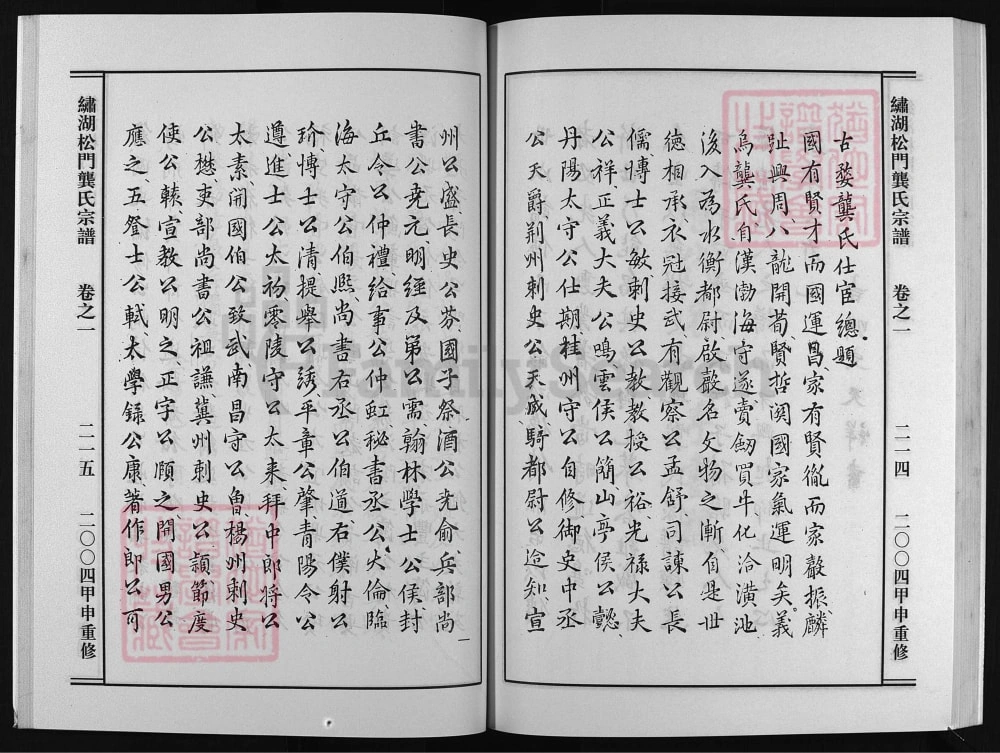 繡湖松門龔氏宗譜 卷之一 二一四 二〇〇四甲申重修
古婺龔氏仕宦總題
國有賢才而國運昌家有賢胤而家聲振麟
趾興周八龍開荀賢哲関國家氣運明矣義
烏龔氏自漢渤海守遂賣劒買牛化洽潢池
後入為水衡都尉啟嚴名文物之漸自是世
德相承衣冠接武有觀察公孟舒司諫公長
儒博士公敏刺史公教教授公裕光祿大夫
公祥正義大夫公鳴雲侯公簡山亭侯公懿
丹陽太守公仕期桂州守公自修御史中丞
公天爵荆州刺史公天威騎都尉公迨知宣
州公盛長史公芬國子祭酒公光俞兵部尚
書公堯元明經及第公需翰林學士公侯封
丘令公仲禮給事公仲虹秘書丞公大倫臨
海太守公伯熈尚書右丞公伯道右僕射公
玠博士公清提舉公綉平章公肇青陽令公
遵進士公太初零陵守公太来拜中郎將公
太素開國伯公致武南昌守公魯楊州刺史
公懋吏部尚書公祖謙冀州刺史公穎節度
使公轅宣教公明之正字公頤之開國男公
應之五登士公軾太學録公康著作郎公可
一
繡湖松門龔氏宗譜 卷之一 二一五 二〇〇四甲申重修
FamilySearch